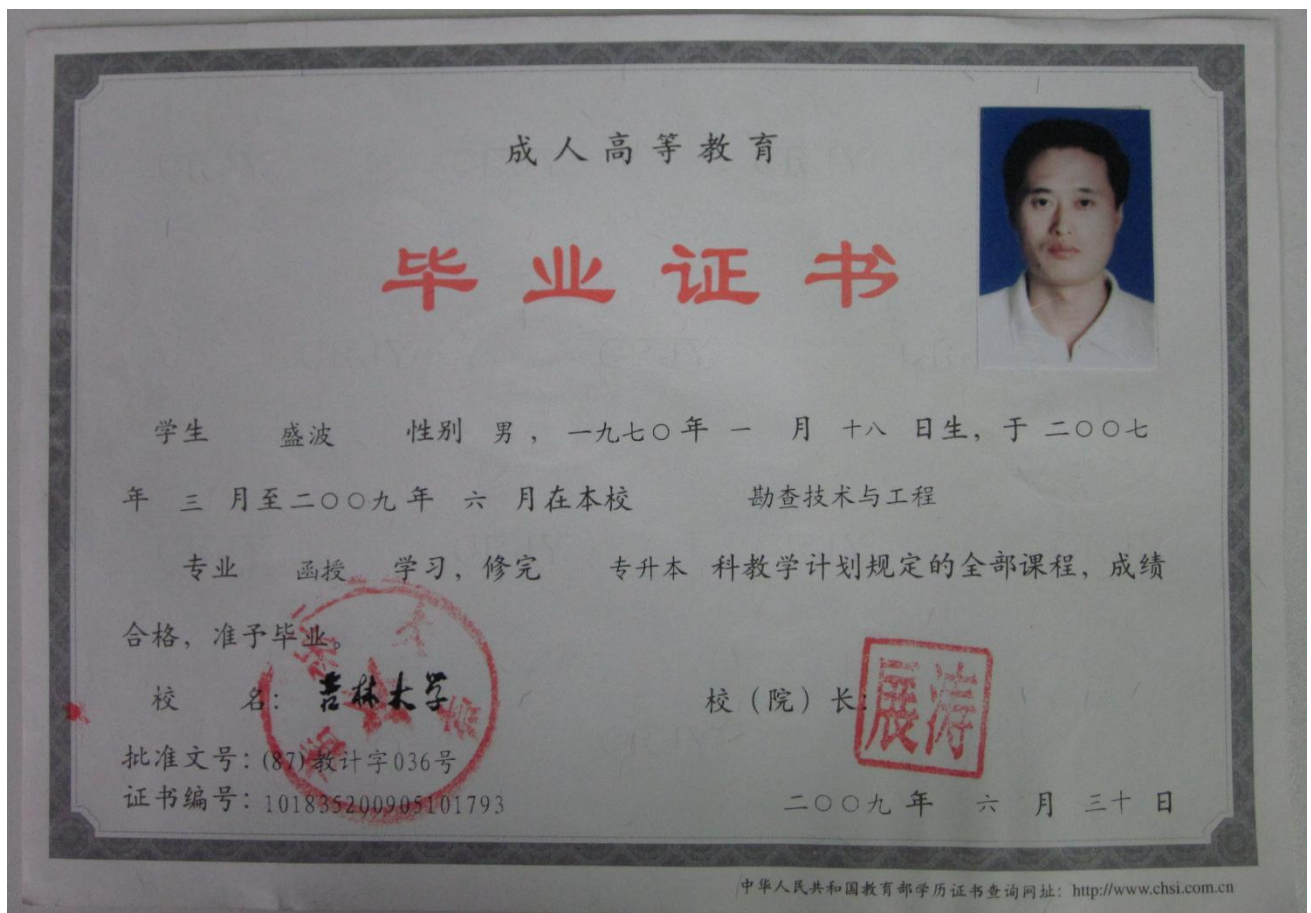 成人高等教育
毕业证书
学生 盛波 性别 男，一九七〇年 一 月 十八 日生，于 二〇〇七
年 三 月至二〇〇九年 六 月在本校 勘查技术与工程
专业 函授 学习，修完 专升本 科教学计划规定的全部课程，成绩
合格，准予毕业。
校 名：吉林大学 校（院）长：展涛
批准文号：(87)教计字036号
证书编号：101835200905101793 二〇〇九 年 六 月 三十 日
中华人民共和国教育部学历证书查询网址：http://www.chsi.com.cn